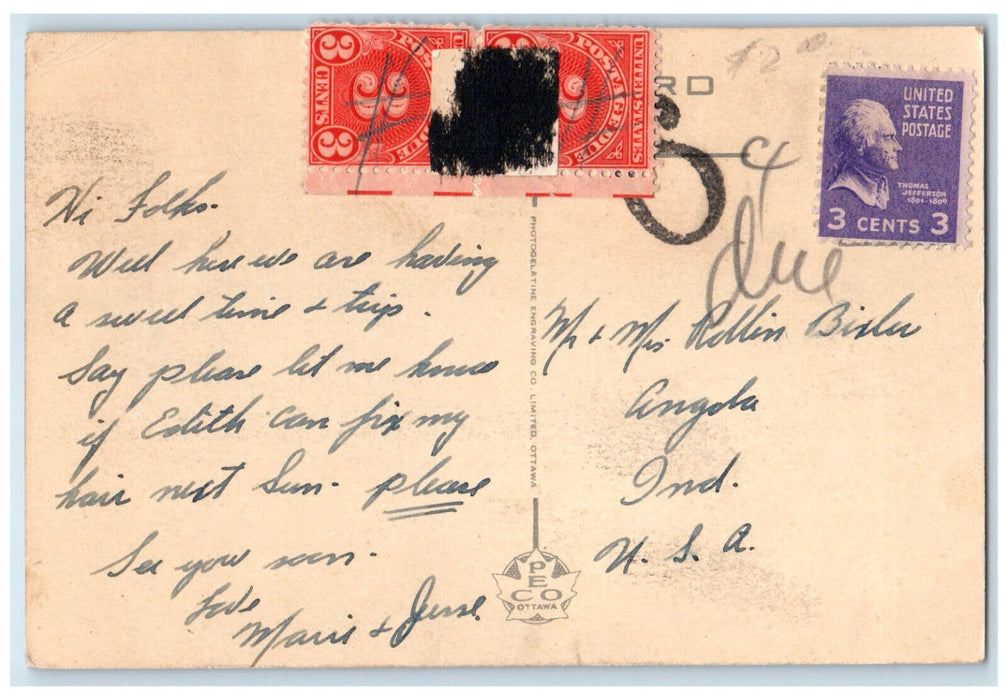 3 CENTS 3
UNITED STATES
POSTAGE DUE
3
CENTS
UNITED STATES
POSTAGE DUE
RD
6
¢
due
UNITED
STATES
POSTAGE
THOMAS
JEFFERSON
1801-1809
3 CENTS 3
Hi Folks.
Well here we are having
a sweet time & trip.
Say please let me know
if Edith can fix my
hair next Sun. please
See you soon.
Love
Marie & Jesse.
PHOTOGELATINE ENGRAVING CO. LIMITED, OTTAWA
PECO
OTTAWA
Mr & Mrs Rollin Bixler
Angola
Ind.
U. S. A.